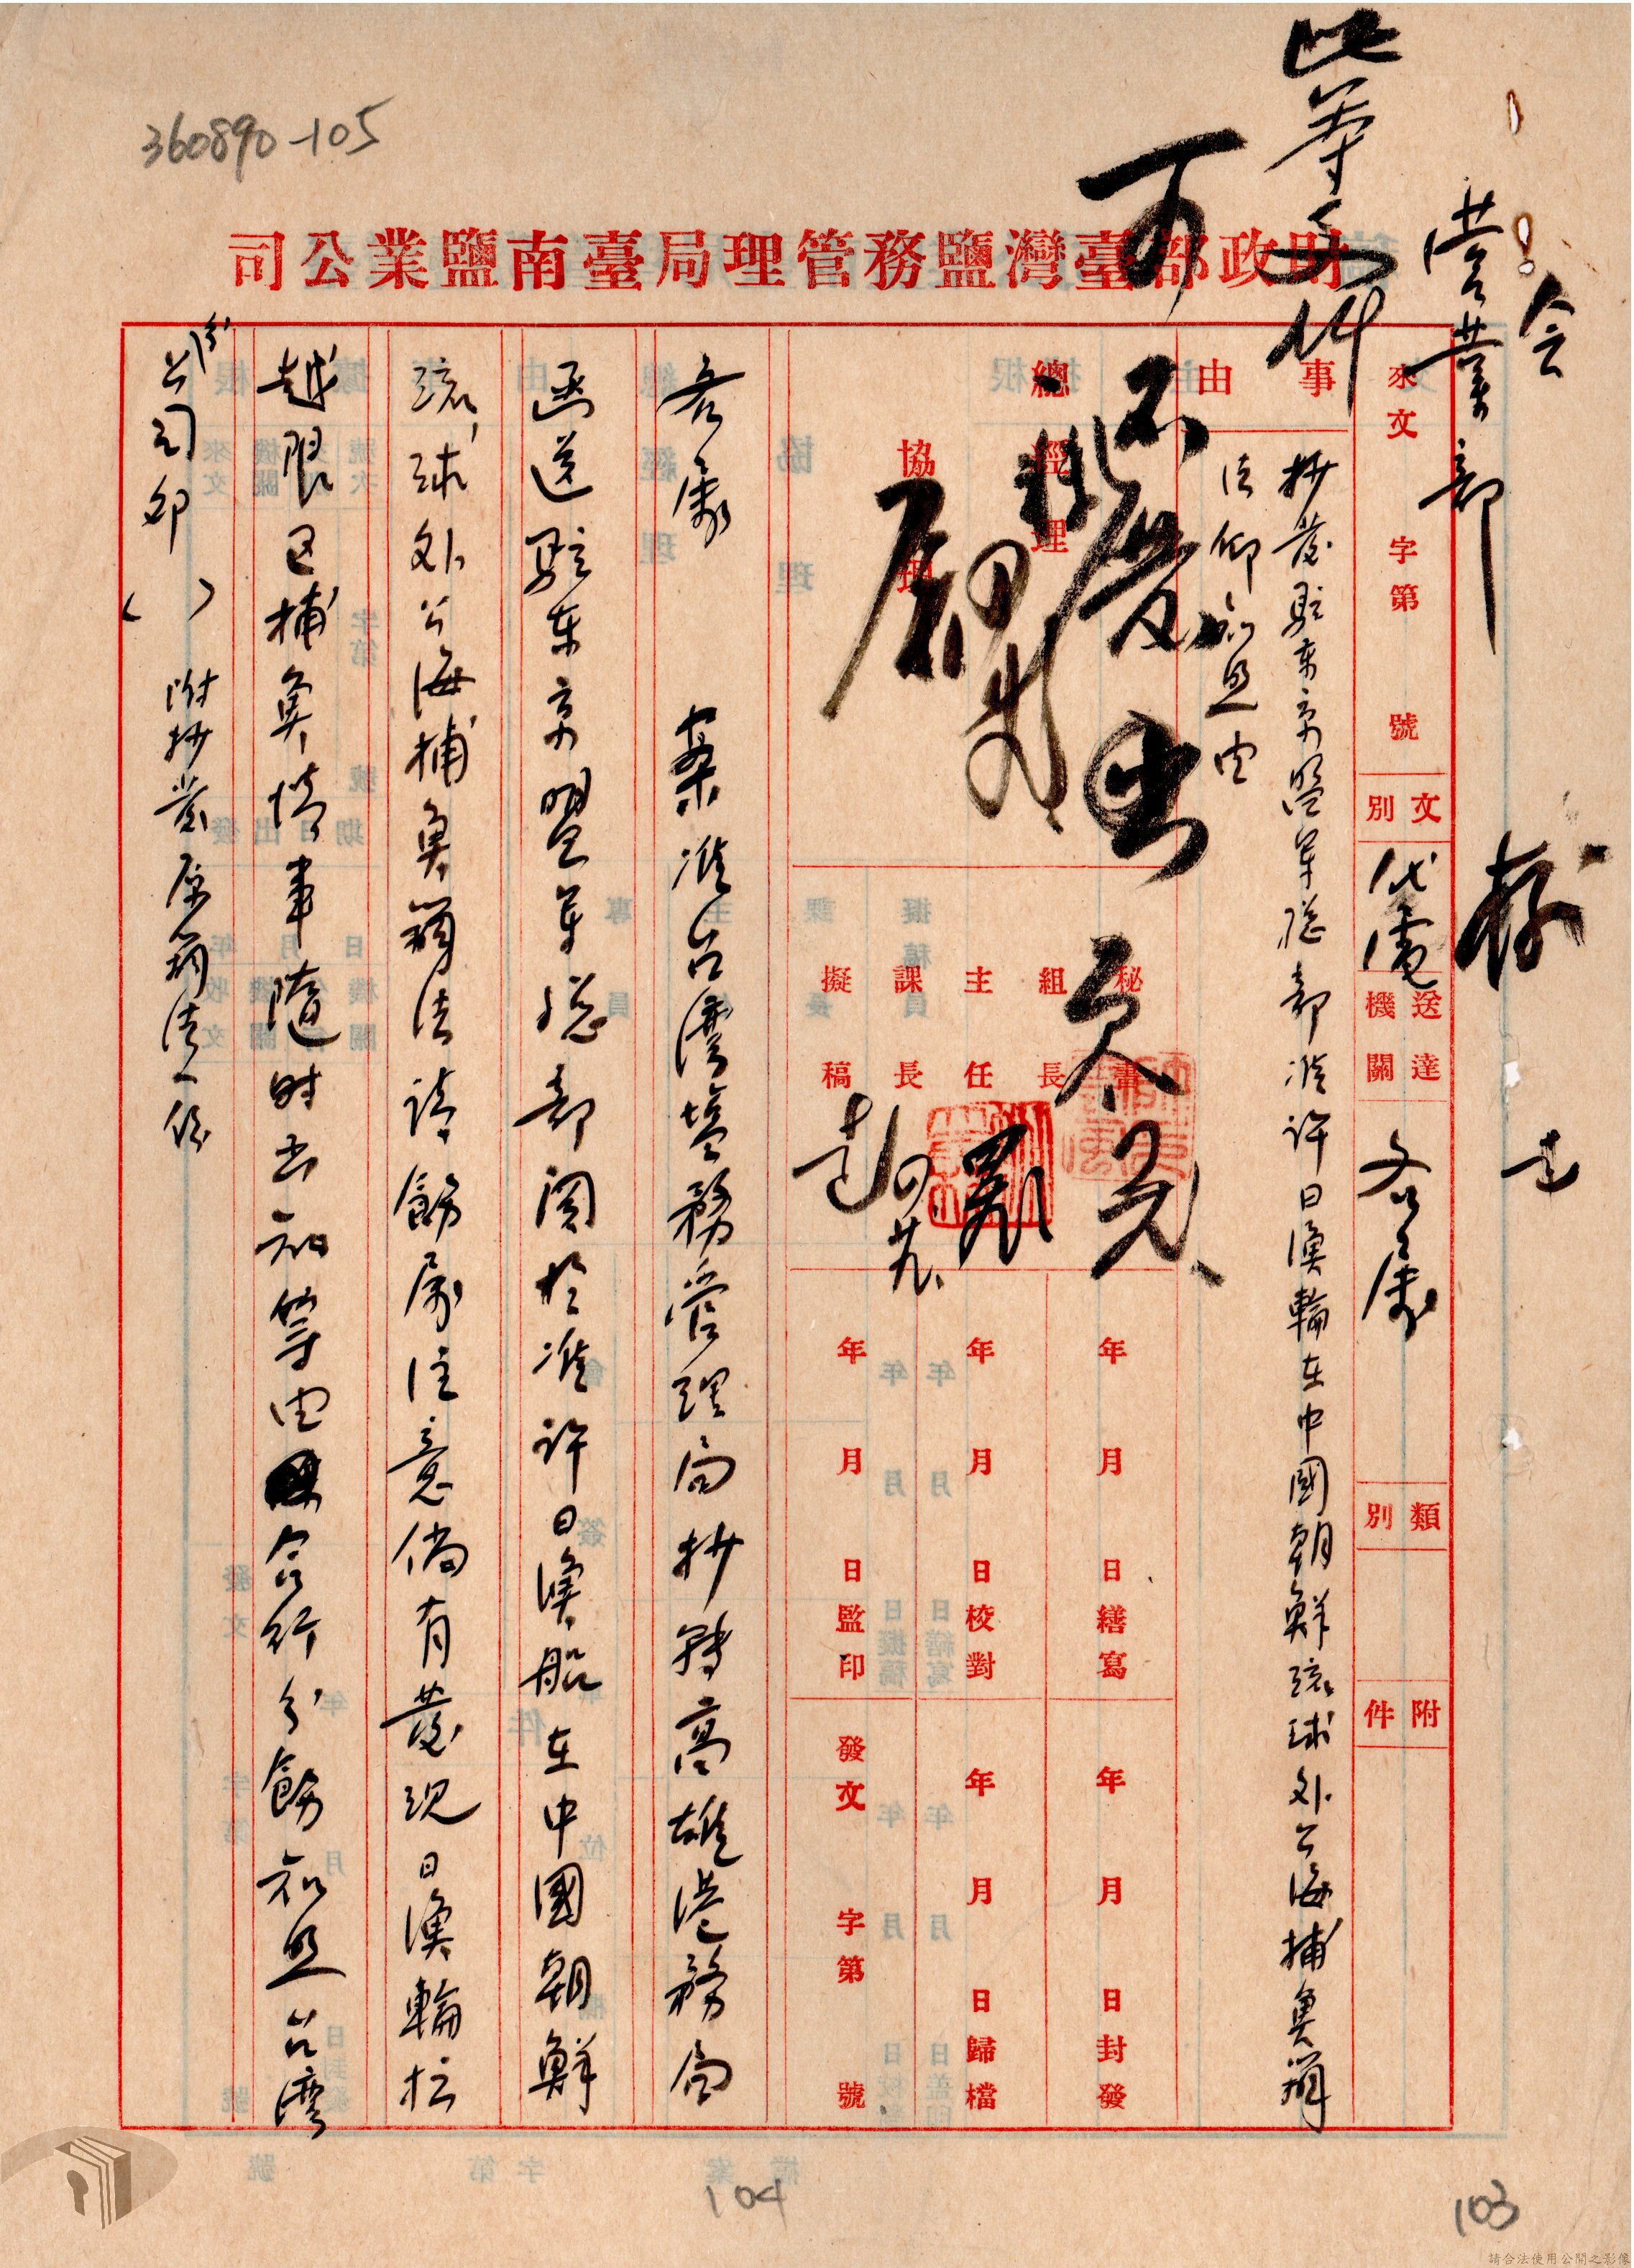 360890-105
財政部臺灣鹽務管理局臺南鹽業公司
會
營業部
存
此等文件
可不發出
來文 字第 號
文別 代電
送達機關 各屬
類別
附件
事由
抄發駐東京盟軍總部准許日漁輪在中國朝鮮琉球外公海捕魚辦
法仰知照由
總經理
協理
秘書
組長
主任
課長
擬稿
年 月 日繕寫
年 月 日校對
年 月 日監印
年 月 日封發
年 月 日歸檔
發文 字第 號
各屬 案准台灣塩務管理局抄轉高雄港務局
函送駐東京盟軍總部関於准許日漁船在中國朝鮮
琉球外公海捕魚辦法請飭屬注意倘有發現日漁輪於
越限區捕魚情事隨時告知等由合行分飭知照台灣
公司卯( ) 附抄發原辦法一份
104
103
請合法使用公開之影像